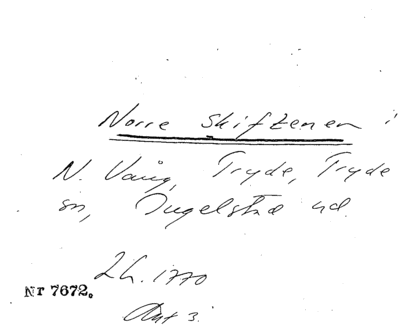 Norre Skiftenen i
N. Vång, Tryde, Tryde
sn, Ingelstad hd.
2 h. 1770
Nr 7672.
Akt 3.